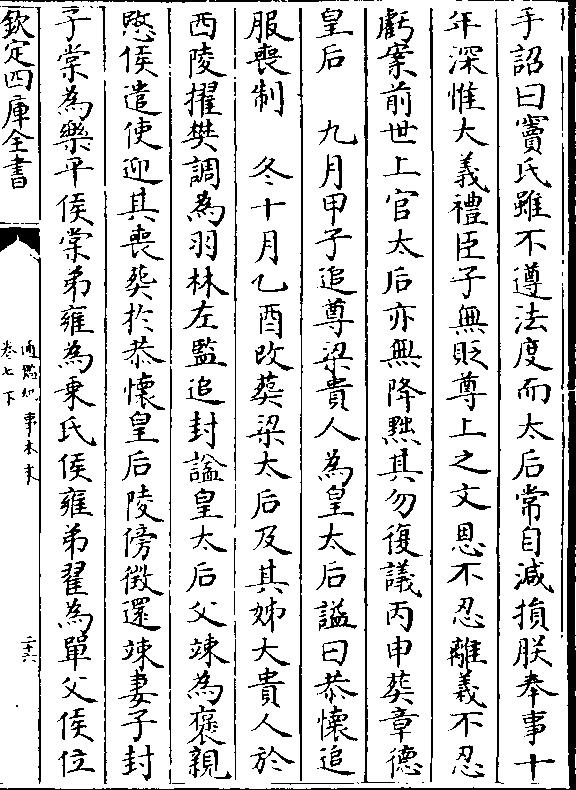 手詔曰竇氏雖不遵法度而太后常自減損朕奉事十
年深惟大義禮臣子無貶尊上之文恩不忍離義不忍
虧案前世上官太后亦無降黜其勿復議丙申葬章德
皇后　九月甲子追尊梁貴人為皇太后謚曰恭懷追
服喪制　冬十月乙酉改葬梁太后及其姊大貴人於
西陵擢樊調為羽林左監追封謚皇太后父竦為褒親
愍侯遣使迎其喪葬於恭懷皇后陵傍徵還竦妻子封
子棠為樂平侯棠弟雍為東氏侯雍弟翟為單父侯位
欽定四庫全書
通鑑紀事本末
卷七下
二十六